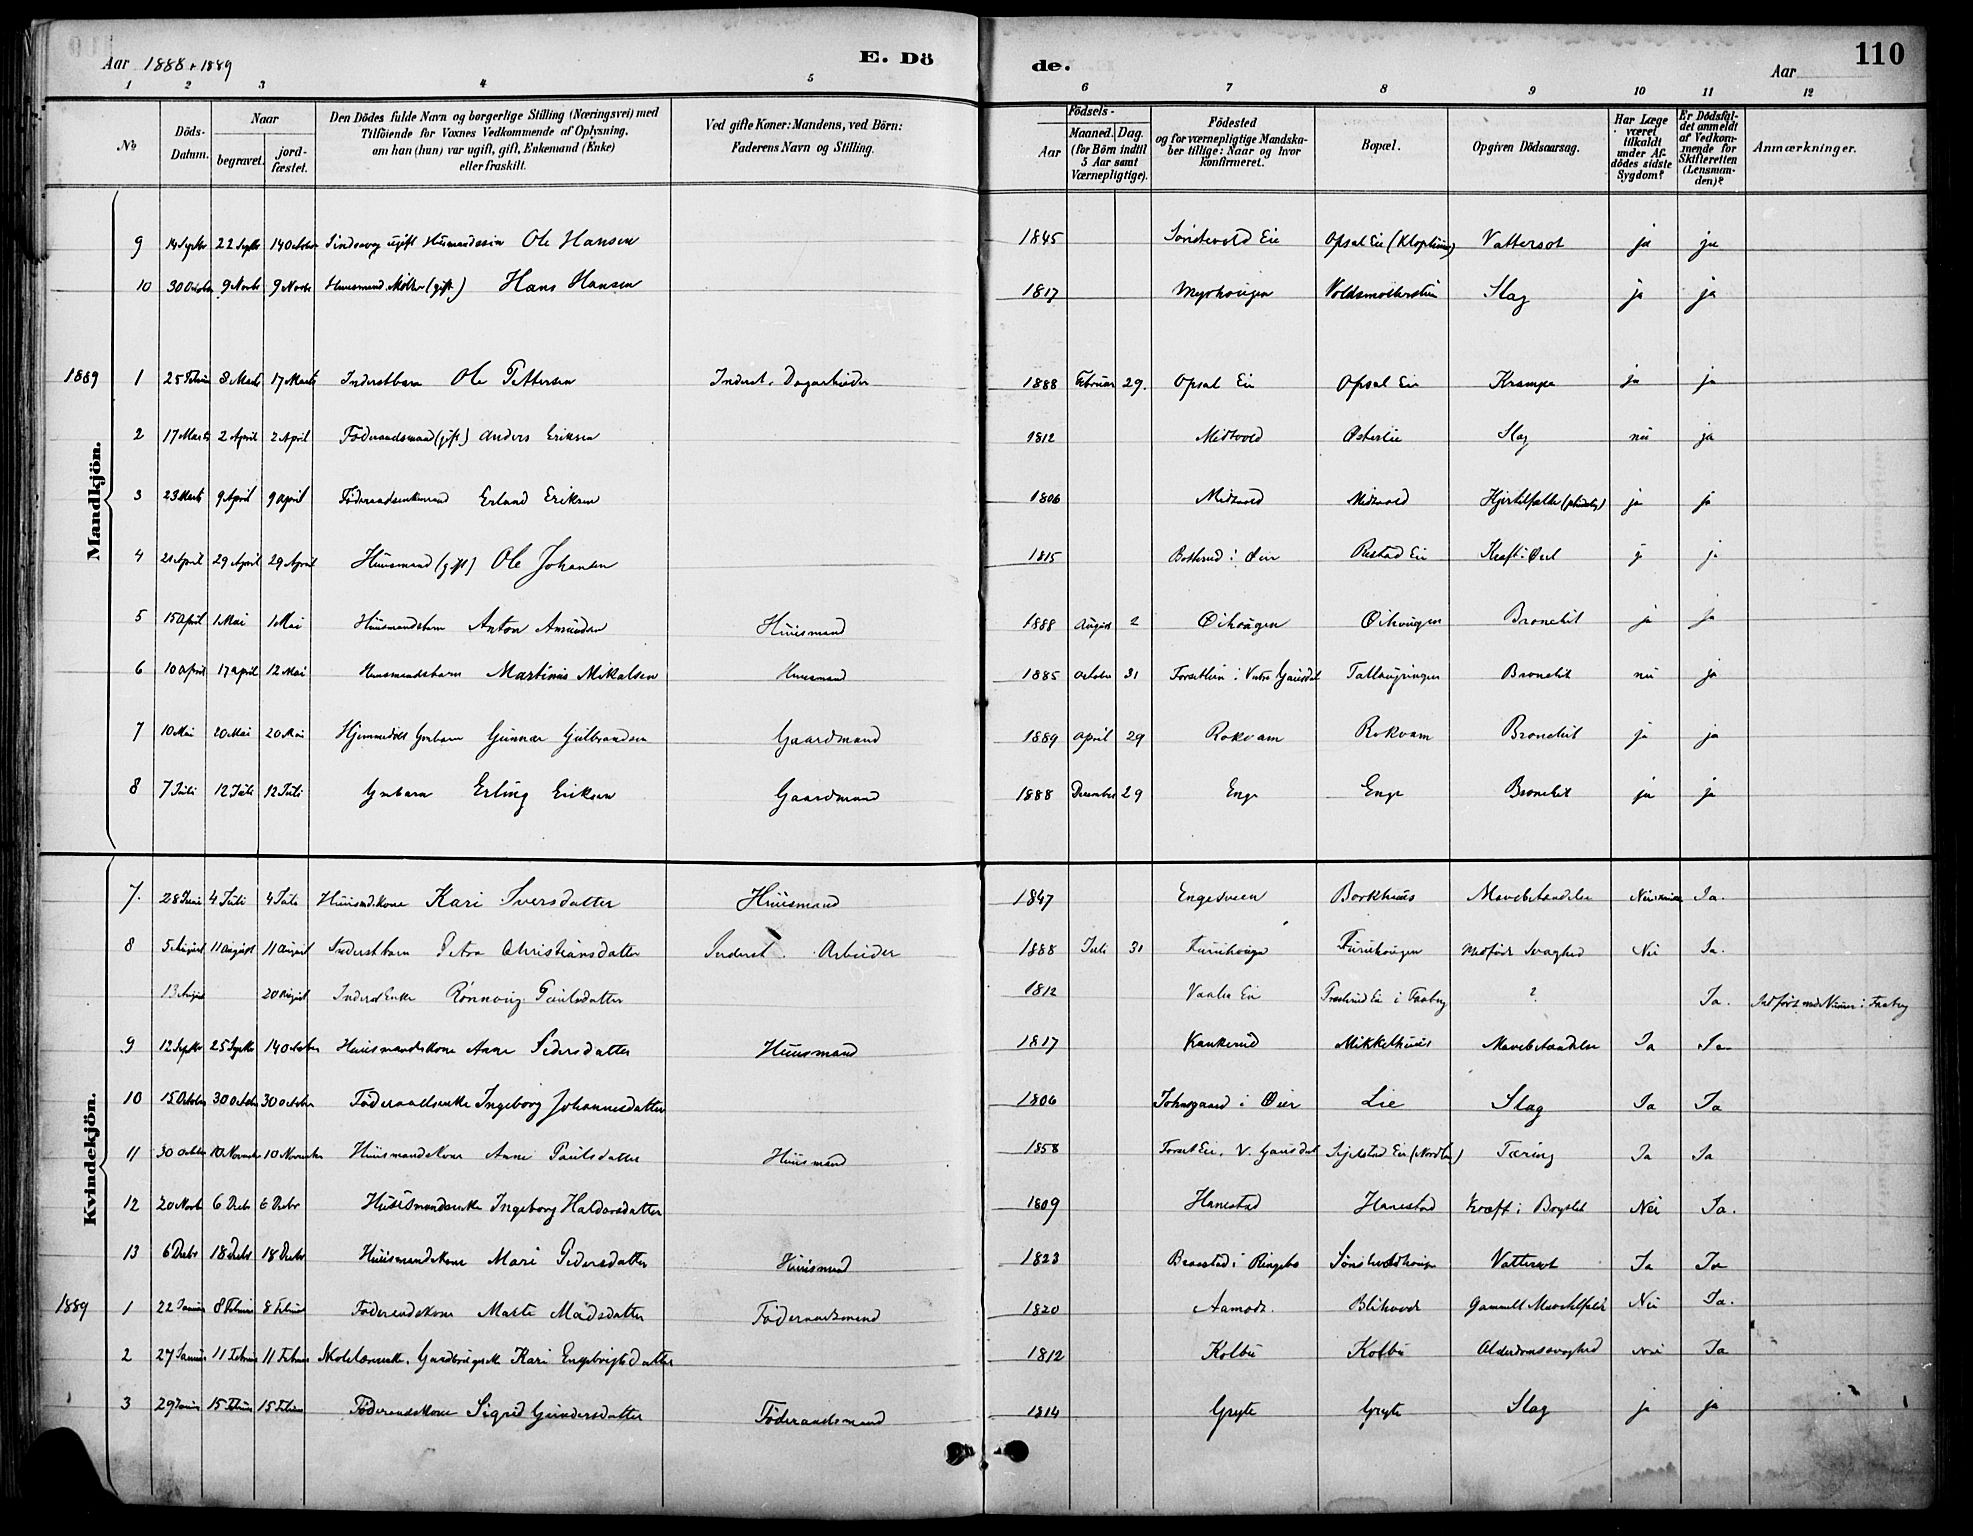 Aar 1888 & 1889 E. Dö de. Aar 110
1 2 3 4 5 6 7 8 9 10 11 12
No Döds-Datum. Naar begravet. jordfæstet. Den Dödes fulde Navn og borgerlige Stilling (Næringsvei) med Tilföiende for Voxnes Vedkommende af Oplysning, om han (hun) var ugift, gift, Enkemand (Enke) eller fraskilt. Ved gifte Koner: Mandens, ved Börn: Faderens Navn og Stilling. Födsels- Aar Maaned. Dag. (for Börn indtil 5 Aar samt Værnepligtige). Födested og for værnepligtige Mandskaber tillige: Naar og hvor konfirmeret. Bopæl. Opgiven Dödsaarsag. Har Læge været tilkaldt under Afdödes sidste Sygdom? Er Dödsfaldet anmeldt af Vedkommende for Skifteretten (Lensmanden)? Anmærkninger.
Mandkjön.
9 14 Septbr 22 Septbr 14 October Sindssvag ugift Husmandssøn Ole Hansen 1845 Sønstevold Eie Opsal Eie Vattersot ja ja
10 30 October 9 Novbr 9 Novbr Huusmand (gift) Hans Hansen 1817 Myrhougen Slag ja ja
1889 1 25 Februar 8 Marts 17 Marts Inderstbarn Ole Pettersen Inderst. Dagarbeider 1888 Februar 29. Opsal Eie Opsal Eie Krampe ja ja
2 17 Marts 2 April 2 April Føderaadsmand (gift) Anders Eriksen 1812 Midtvold Østerlie Slag nei ja
3 23 Marts 9 April 9 April Føderaadsenkemand Erland Eriksen 1806 Midtvold Midtvold ja ja
4 21 April 29 April 29 April Huusmand (gift) Ole Johansen 1815 i Øier Rustad Eie Kræft i ja ja
5 15 April 1 Mai 1 Mai Huusmandsbarn Anton Amundsen Huusmand 1888 August 2 Øihougen Øihougen Bronchit ja ja
6 10 April 17 April 12 Mai Huusmandsbarn Martinus Mikalsen Huusmand 1885 October 31 i Vestre Gausdal Bronchit nei ja
7 10 Mai 20 Mai 20 Mai Hjemmedøbt Gmbarn Gunnar Gulbrandsen Gaardmand 1889 April 29 Rokvam Rokvam Bronchit ja ja
8 7 Juli 12 Juli 12 Juli Gmbarn Erling Eriksen Gaardmand 1888 December 29 Enge Enge Bronchit ja ja
Kvindekjön.
7. 28 Juni 4 Juli 4 Juli Huusmdskone Kari Iversdatter Huusmand 1847 Engesveen Borkhuus Mavebetændelse Ja.
8 5 August 11 August 11 August Inderstbarn Petra Christiansdatter Inderst. Arbeider 1888 Juli 31 Furuhougen Furuhougen Medfødt Svaghed Nei Ja.
13 August 20 August Inderst Enke Rønnoug Paulsdatter 1812 Vaalen Eie i Faaberg ? Ja. i Faaberg
9 12 Septbr 25 Septbr 14 October Huusmandskone Anne Pedersdatter Huusmand 1817 Kankerud Mikkelhuus Mavebetændelse Ja Ja
10 15 October 30 October 30 October Føderaadsenke Ingeborg Johannesdatter 1806 Johnsgaard i Øier Lie Slag Ja Ja
11 30 October 10 November 10 November Huusmandskone Anne Paulsdatter Huusmand 1858 Forset Eie, V. Gausdal Tæring Ja Ja
12 20 Novbr 6 Decbr 6 Decbr Huusmandsenke Ingeborg Haldorsdatter 1809 Hanestad Hanestad Kræft i Brystet Nei Ja.
13 6 Decbr 18 Decbr 18 Decbr Huusmandskone Mari Pedersdatter Huusmand 1823 i Ringebo Vattersot Ja Ja
1889 1 22 Januar 8 Februar 8 Februar Føderaadskone Marte Madsdatter Føderaadsmand 1820 Aamodt Gammelt Nei Ja.
2 27 Januar 11 Februar 11 Februar Kari Engebrigtsdatter 1812 Kolbu Kolbu Alderdomssvaghed Nei Ja
3 29 Januar 15 Februar 15 Februar Føderaadskone Sigrid Gundersdatter Føderaadsmand 1814 Gryte Gryte Slag ja ja